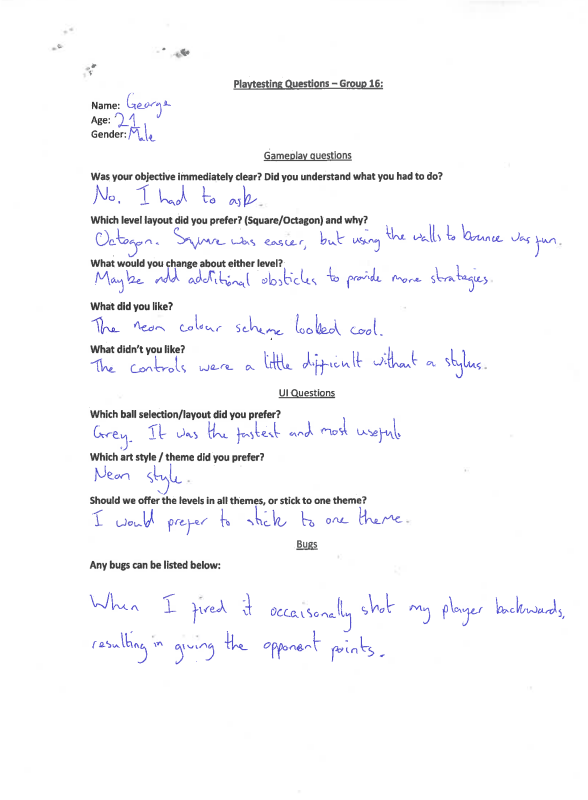 Playtesting Questions – Group 16:
Name: George
Age: 21
Gender: Male
Gameplay questions
Was your objective immediately clear? Did you understand what you had to do?
No. I had to ask.
Which level layout did you prefer? (Square/Octagon) and why?
Octagon. Square was easier, but using the walls to bounce was fun.
What would you change about either level?
Maybe add additional obsticles to provide more strategies.
What did you like?
The neon colour scheme looked cool.
What didn't you like?
The controls were a little difficult without a stylus.
UI Questions
Which ball selection/layout did you prefer?
Grey. It was the fastest and most useful.
Which art style / theme did you prefer?
Neon style.
Should we offer the levels in all themes, or stick to one theme?
I would prefer to stick to one theme.
Bugs
Any bugs can be listed below:
When I fired it occaisonally shot my player backwards,
resulting in giving the opponent points.